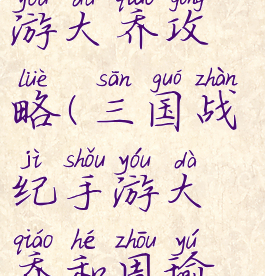 yóu dà qiáo gōng
游大乔攻
lüè sān guó zhàn
略(三国战
jì shǒu yóu dà
纪手游大
qiáo hé zhōu yú
乔和周瑜